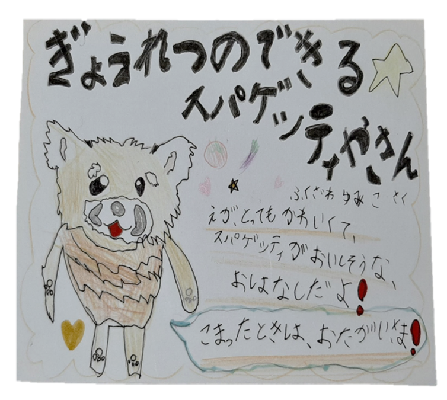 ぎょうれつのできる
スパゲッティやさん
ふくざわ ゆみこ さく
えがとってもかわいくて、
スパゲッティがおいしそうな、
おはなしだよ!
こまったときは、おたがいさま!